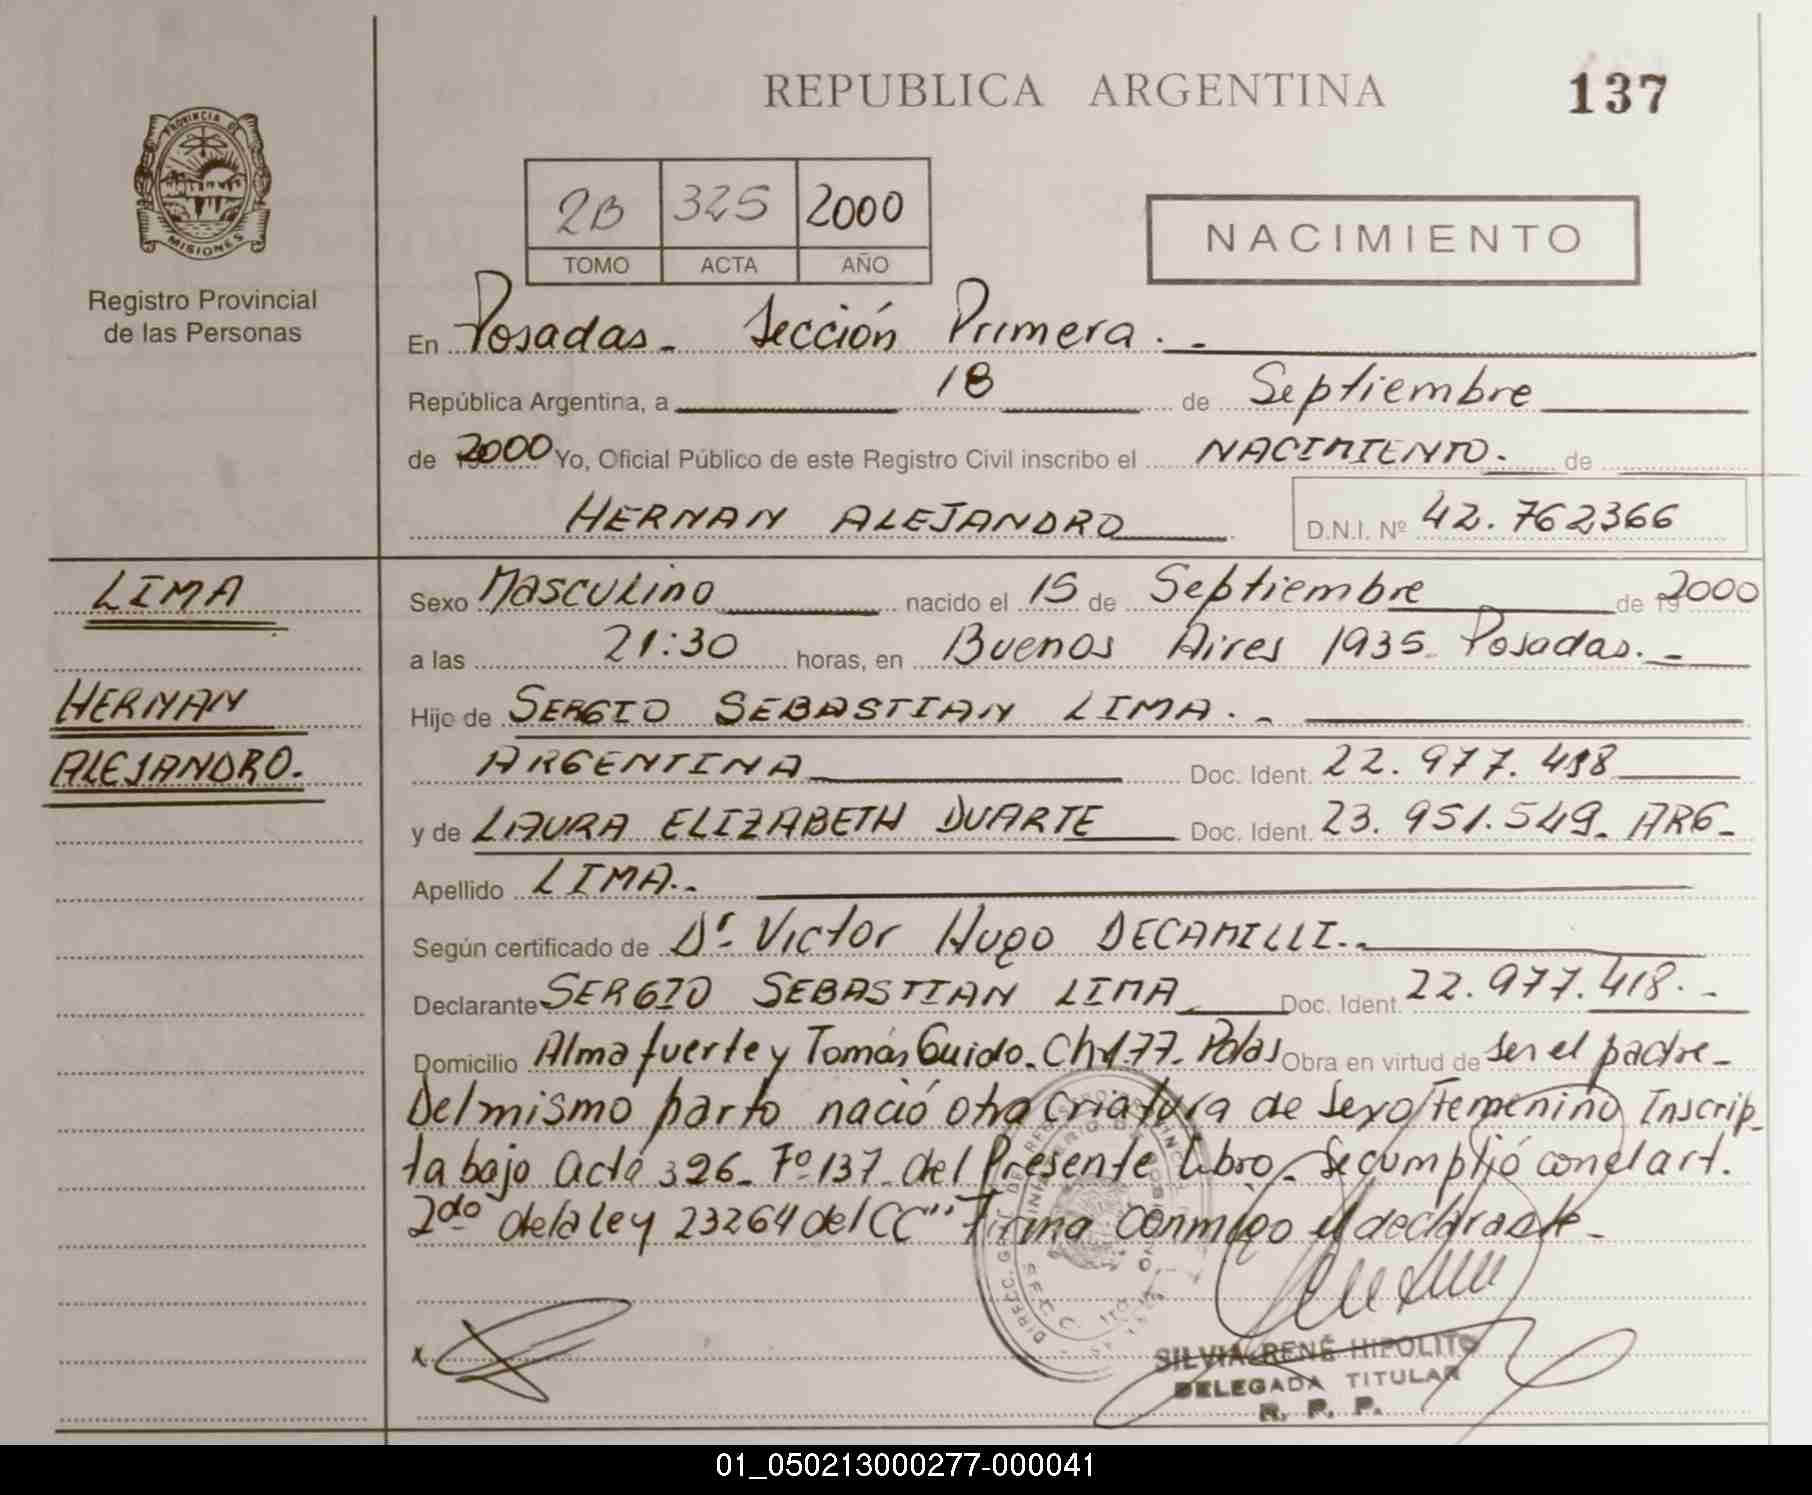 REPUBLICA ARGENTINA
137
PROVINCIA DE
MISIONES
Registro Provincial
de las Personas
2B 325 2000
TOMO ACTA AÑO
NACIMIENTO
En Posadas - Sección Primera . -
República Argentina, a 18 de Septiembre
de 2000 Yo, Oficial Público de este Registro Civil inscribo el NACIMIENTO. de
HERNAN ALEJANDRO D.N.I. Nº 42.762366
LIMA
HERNAN
ALEJANDRO.
Sexo Masculino nacido el 15 de Septiembre de 2000
a las 21:30 horas, en Buenos Aires 1935 Posadas. -
Hijo de SERGIO SEBASTIAN LIMA. -
ARGENTINA Doc. Ident. 22.977.418
y de LAURA ELIZABETH DUARTE Doc. Ident. 23.951.549- ARG-
Apellido LIMA.-
Según certificado de Dr. Victor Hugo DECAMILLI.-
Declarante SERGIO SEBASTIAN LIMA Doc. Ident. 22.977.418. -
Domicilio Almafuerte y Tomás Guido. Ch 177- Pdas Obra en virtud de ser el padre-
Del mismo parto nació otra criatura de sexo Femenino Inscrip-
ta bajo acta 326- Fº 137- del Presente libro - Se cumplió con el art.
2do de la ley 23264 del CC" Firma conmigo el declarante-
x
SILVIA RENÉ HIPOLITO
DELEGADA TITULAR
R. P. P.
01_050213000277-000041